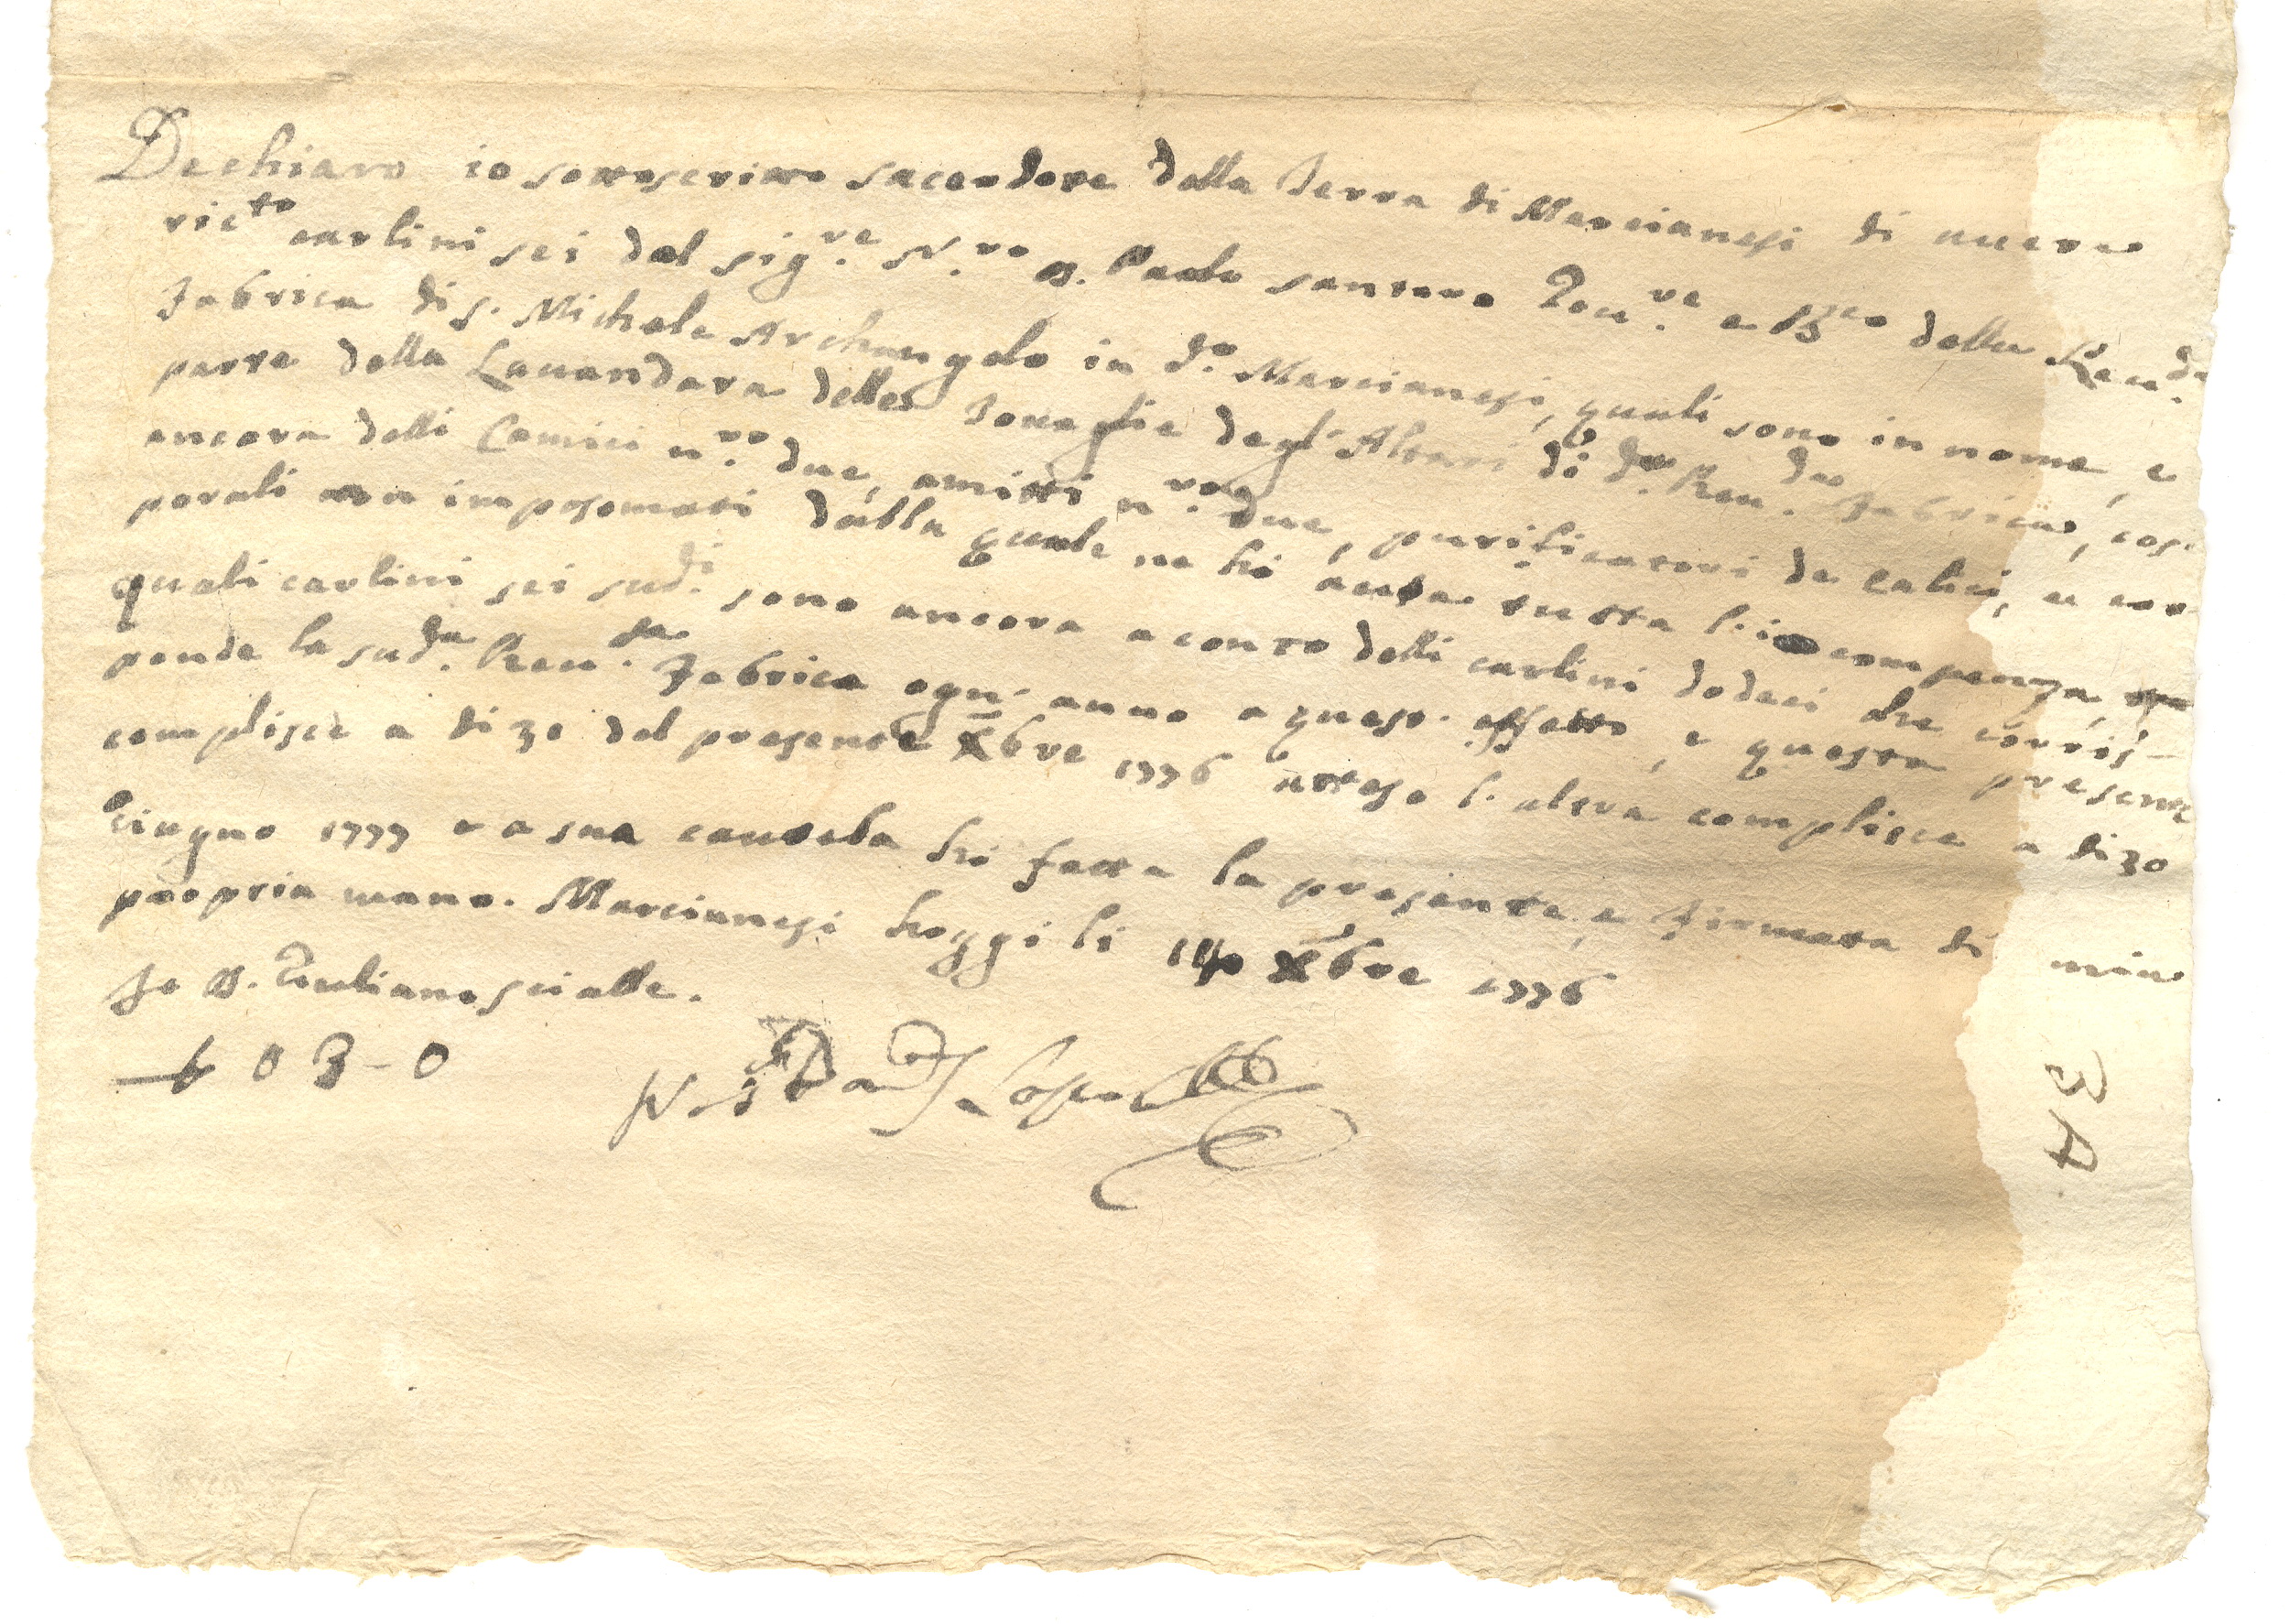 Dechiaro io sottoscritto sacerdote della Terra di Marcianesi di avere
ric.to carlini sei dal sig.re N.ro D. Paolo santoro Proc.re e della Reu.da
Fabrica di S. Michele Archangelo in d.o Marcianesi, quali sono in nome, e
parte della Lauandara delle Touaglie degl' Altari di d.a Reu.da Fabrica, cosi
ancora delli Camici n.ro due, amitti n.ro due, purificatori de calici, e cor
porali imposomati dalla quale ne hò auuta tutta l'incompenza,
quali carlini sei sud.i sono ancora a conto delli carlini dodeci che corris-
ponde la sud.a Reu.da Fabrica ogn' anno a quest' effetto, e questa presente
complisce a di 30 del presente Xbre 1776 atteso l'altra complisce a di 30
Giugno 1777 e a sua cautela hò fatta la presente, e firmata di mia
propria mano. Marcianesi hoggi li Xbre 1776
Io D. Giuliano scialle.
0 3 - 0
3 A